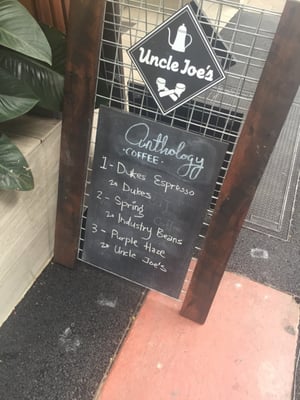 Uncle Joe's
Anthology
COFFEE
1 - Dukes Espresso
Dukes
2 - Spring
Industry Beans
3 - Purple Haze
Uncle Joe's